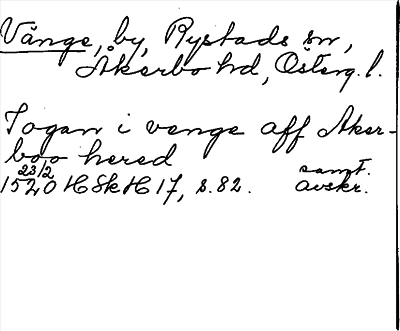 Vänge, by, Rystads sn,
Åkerbo hd, Österg. l.
Togan i venge aff Aker-
boo hered
23/2 samt.
1520 HSkH 17, s. 82. avskr.